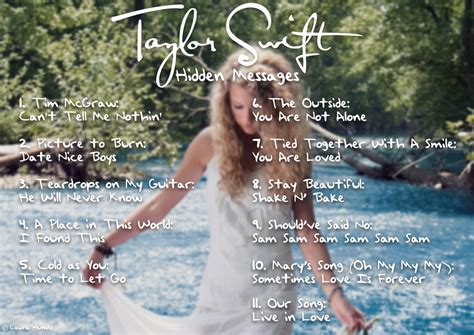 Taylor Swift
Hidden Messages
1. Tim McGraw:
Can't Tell Me Nothin'
2. Picture to Burn:
Date Nice Boys
3. Teardrops on My Guitar:
He Will Never Know
4. A Place in This World:
I Found This
5. Cold as You:
Time to Let Go
6. The Outside:
You Are Not Alone
7. Tied Together With A Smile:
You Are Loved
8. Stay Beautiful:
Shake N' Bake
9. Should've Said No:
Sam Sam Sam Sam Sam Sam
10. Mary's Song (Oh My My My):
Sometimes Love Is Forever
11. Our Song:
Live in Love